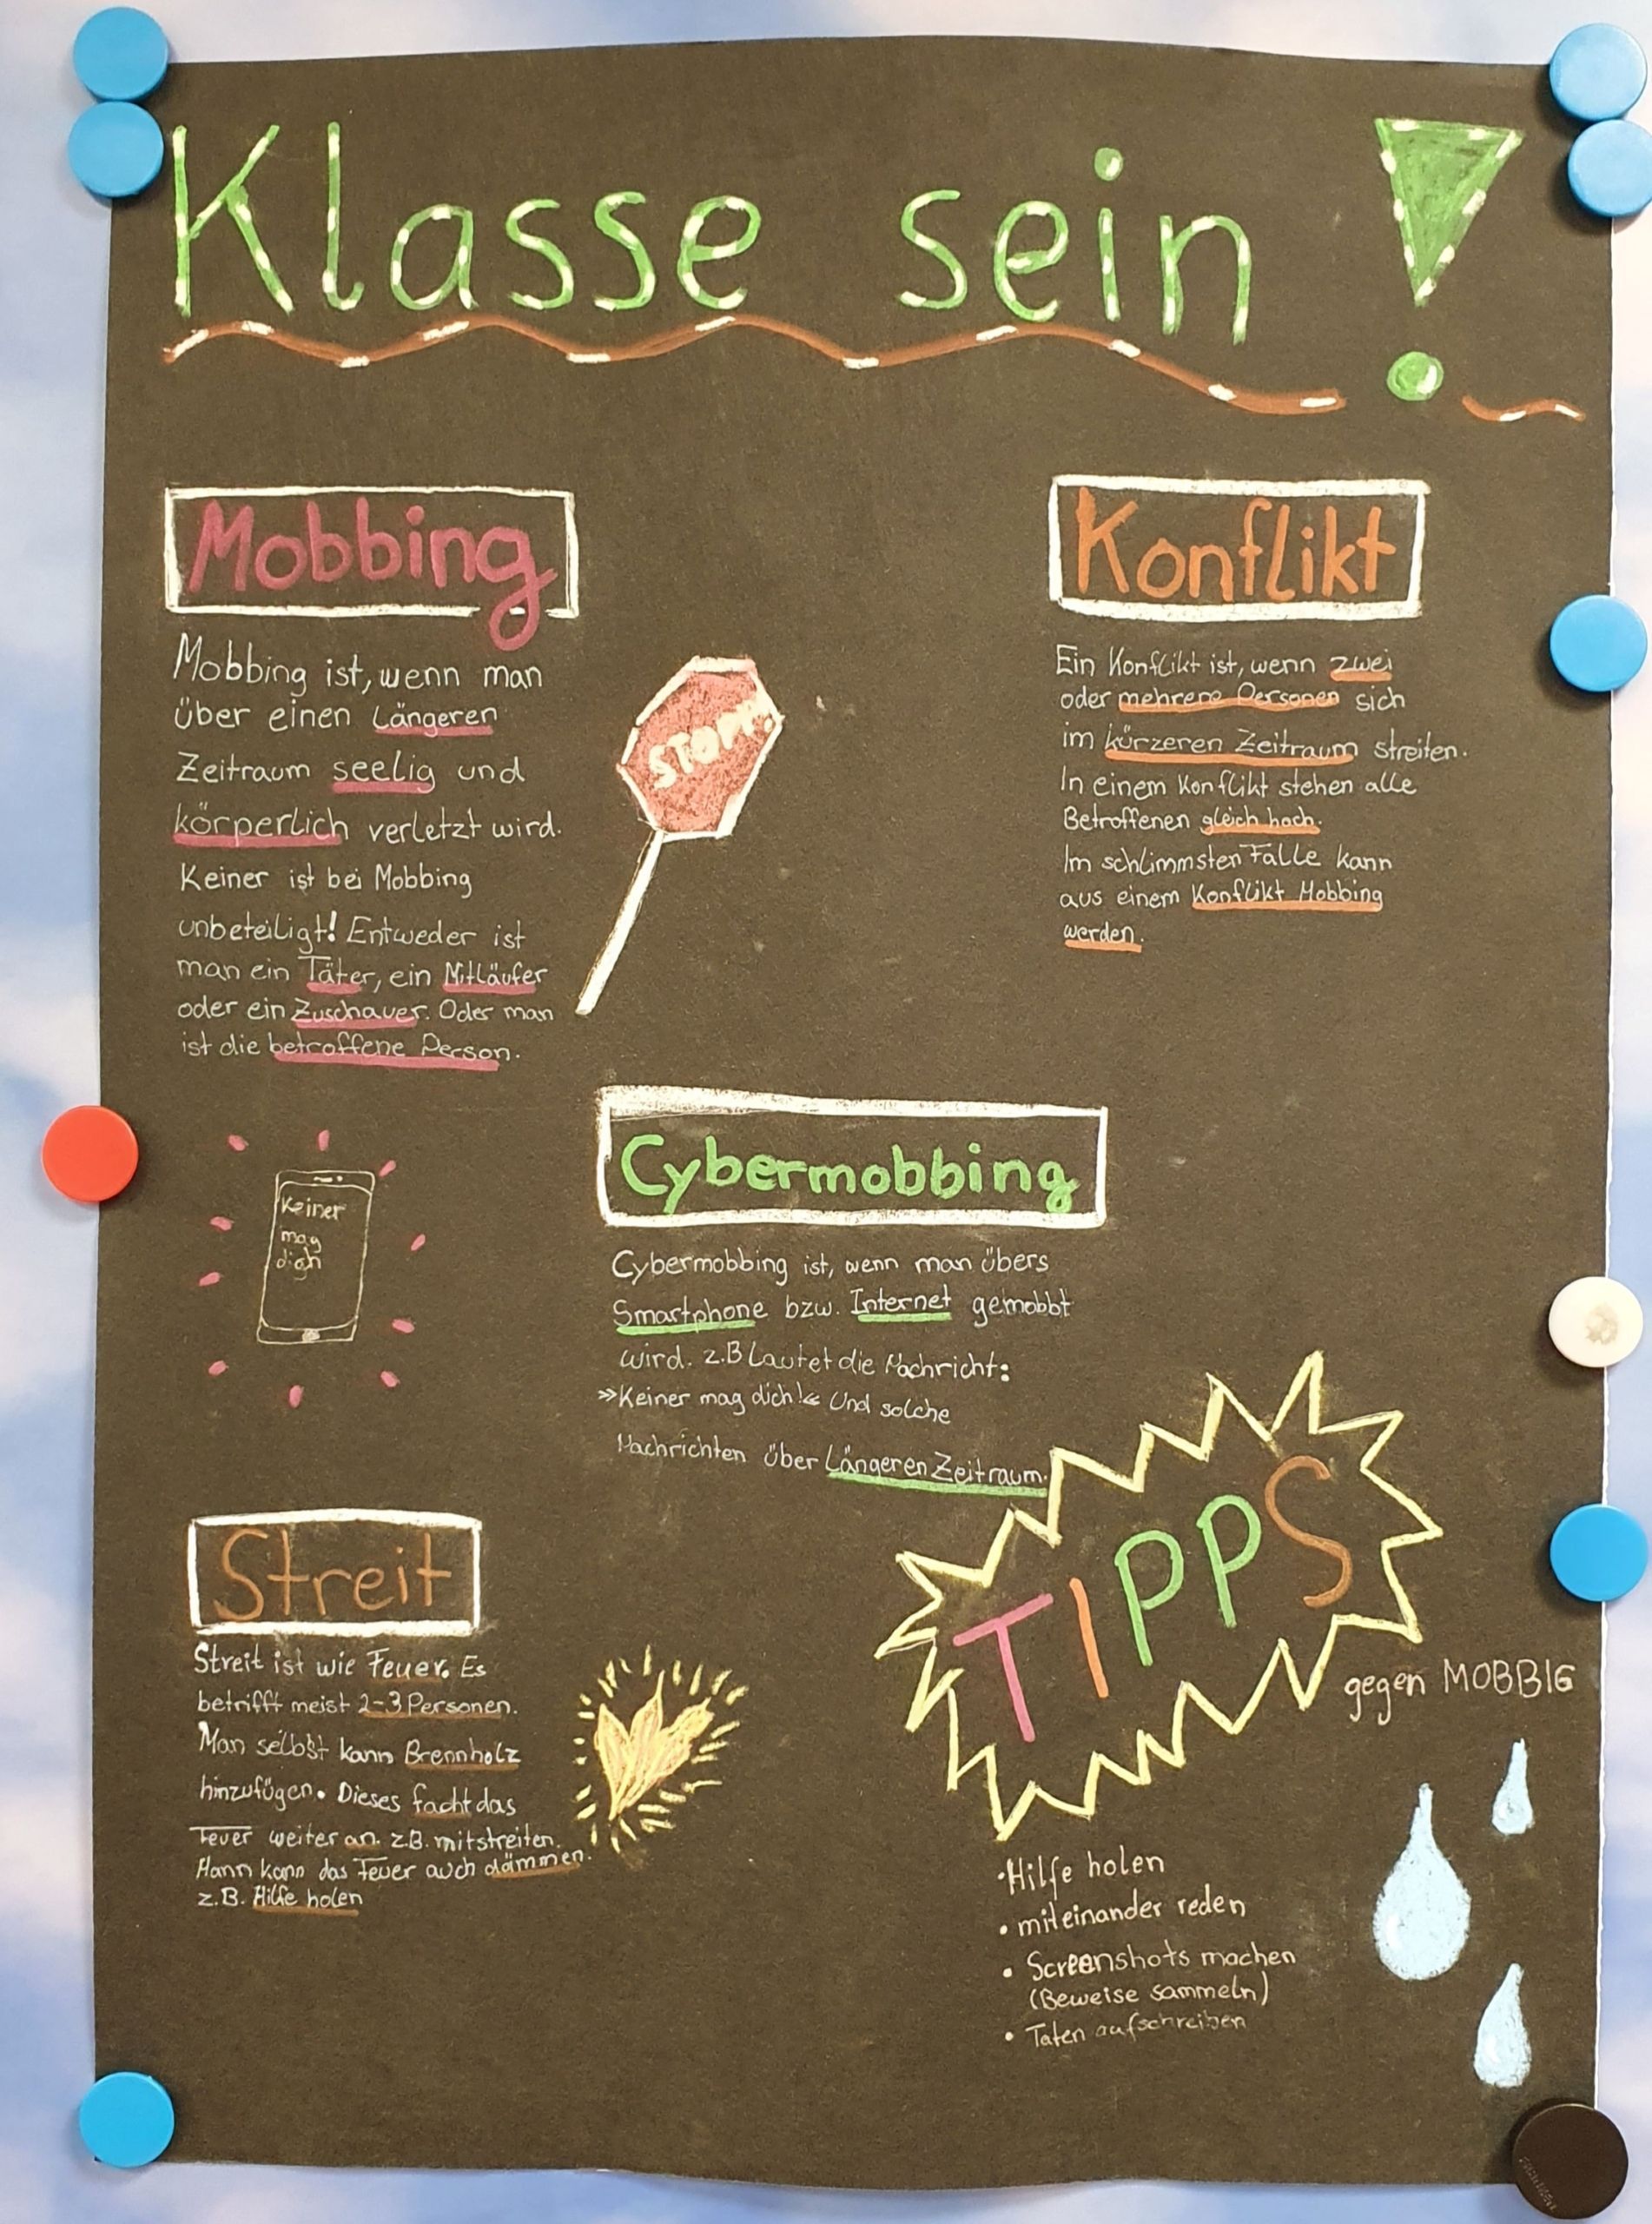 Klasse sein!
Mobbing
Mobbing ist, wenn man
über einen Längeren
Zeitraum seelig und
körperlich verletzt wird.
Keiner ist bei Mobbing
unbeteiligt! Entweder ist
man ein Täter, ein Mitläufer
oder ein Zuschauer. Oder man
ist die betroffene Person.
STOPP!
Konflikt
Ein Konflikt ist, wenn zwei
oder mehrere Personen sich
im kürzeren Zeitraum streiten.
In einem Konflikt stehen alle
Betroffenen gleich hoch.
Im schlimmsten Falle kann
aus einem Konflikt Mobbing
werden.
Keiner
mag
dich
Cybermobbing
Cybermobbing ist, wenn man übers
Smartphone bzw. Internet gemobbt
wird. z.B Lautet die Nachricht:
»Keiner mag dich!« Und solche
Nachrichten über Längeren Zeitraum.
Streit
Streit ist wie Feuer. Es
betrifft meist 2-3 Personen.
Man selbst kann Brennholz
hinzufügen. Dieses facht das
Feuer weiter an. z.B. mitstreiten.
Mann kann das Feuer auch dämmen.
z.B. Hilfe holen
TIPPS
gegen MOBBIG
•Hilfe holen
• miteinander reden
• Screenshots machen
(Beweise sammeln)
• Taten aufschreiben